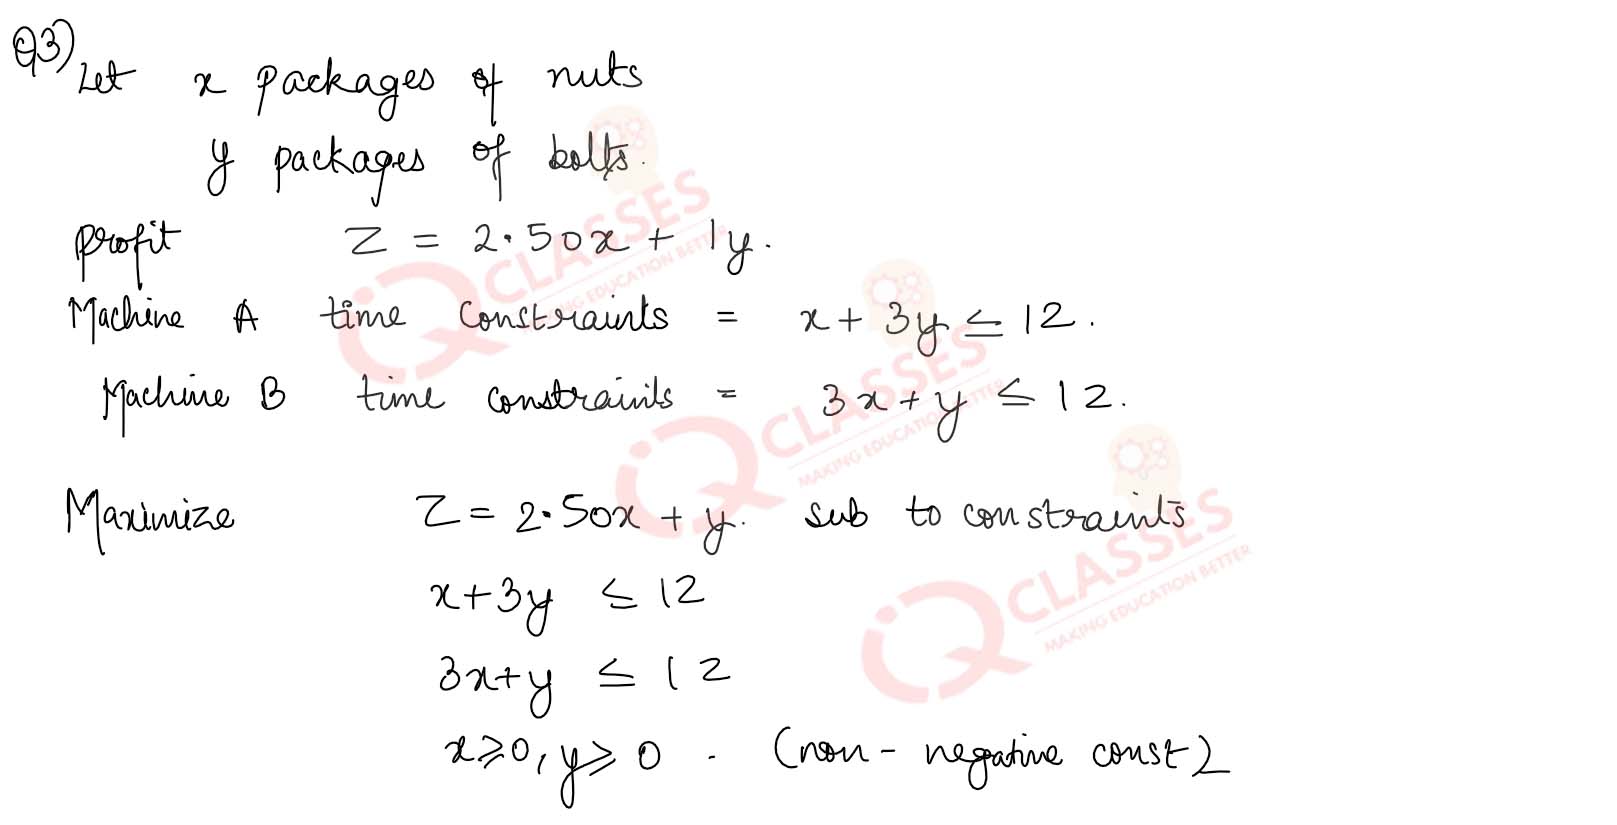 Q3) Let x packages of nuts
y packages of bolts.
Profit Z = 2.50x + 1y.
Machine A time constraints = x + 3y ≤ 12.
Machine B time constraints = 3x + y ≤ 12.
Maximize Z = 2.50x + y. sub to constraints
x+3y ≤ 12
3x+y ≤ 12
x≥0, y≥0. (non-negative const)
iQ CLASSES
MAKING EDUCATION BETTER
iQ CLASSES
MAKING EDUCATION BETTER
iQ CLASSES
MAKING EDUCATION BETTER